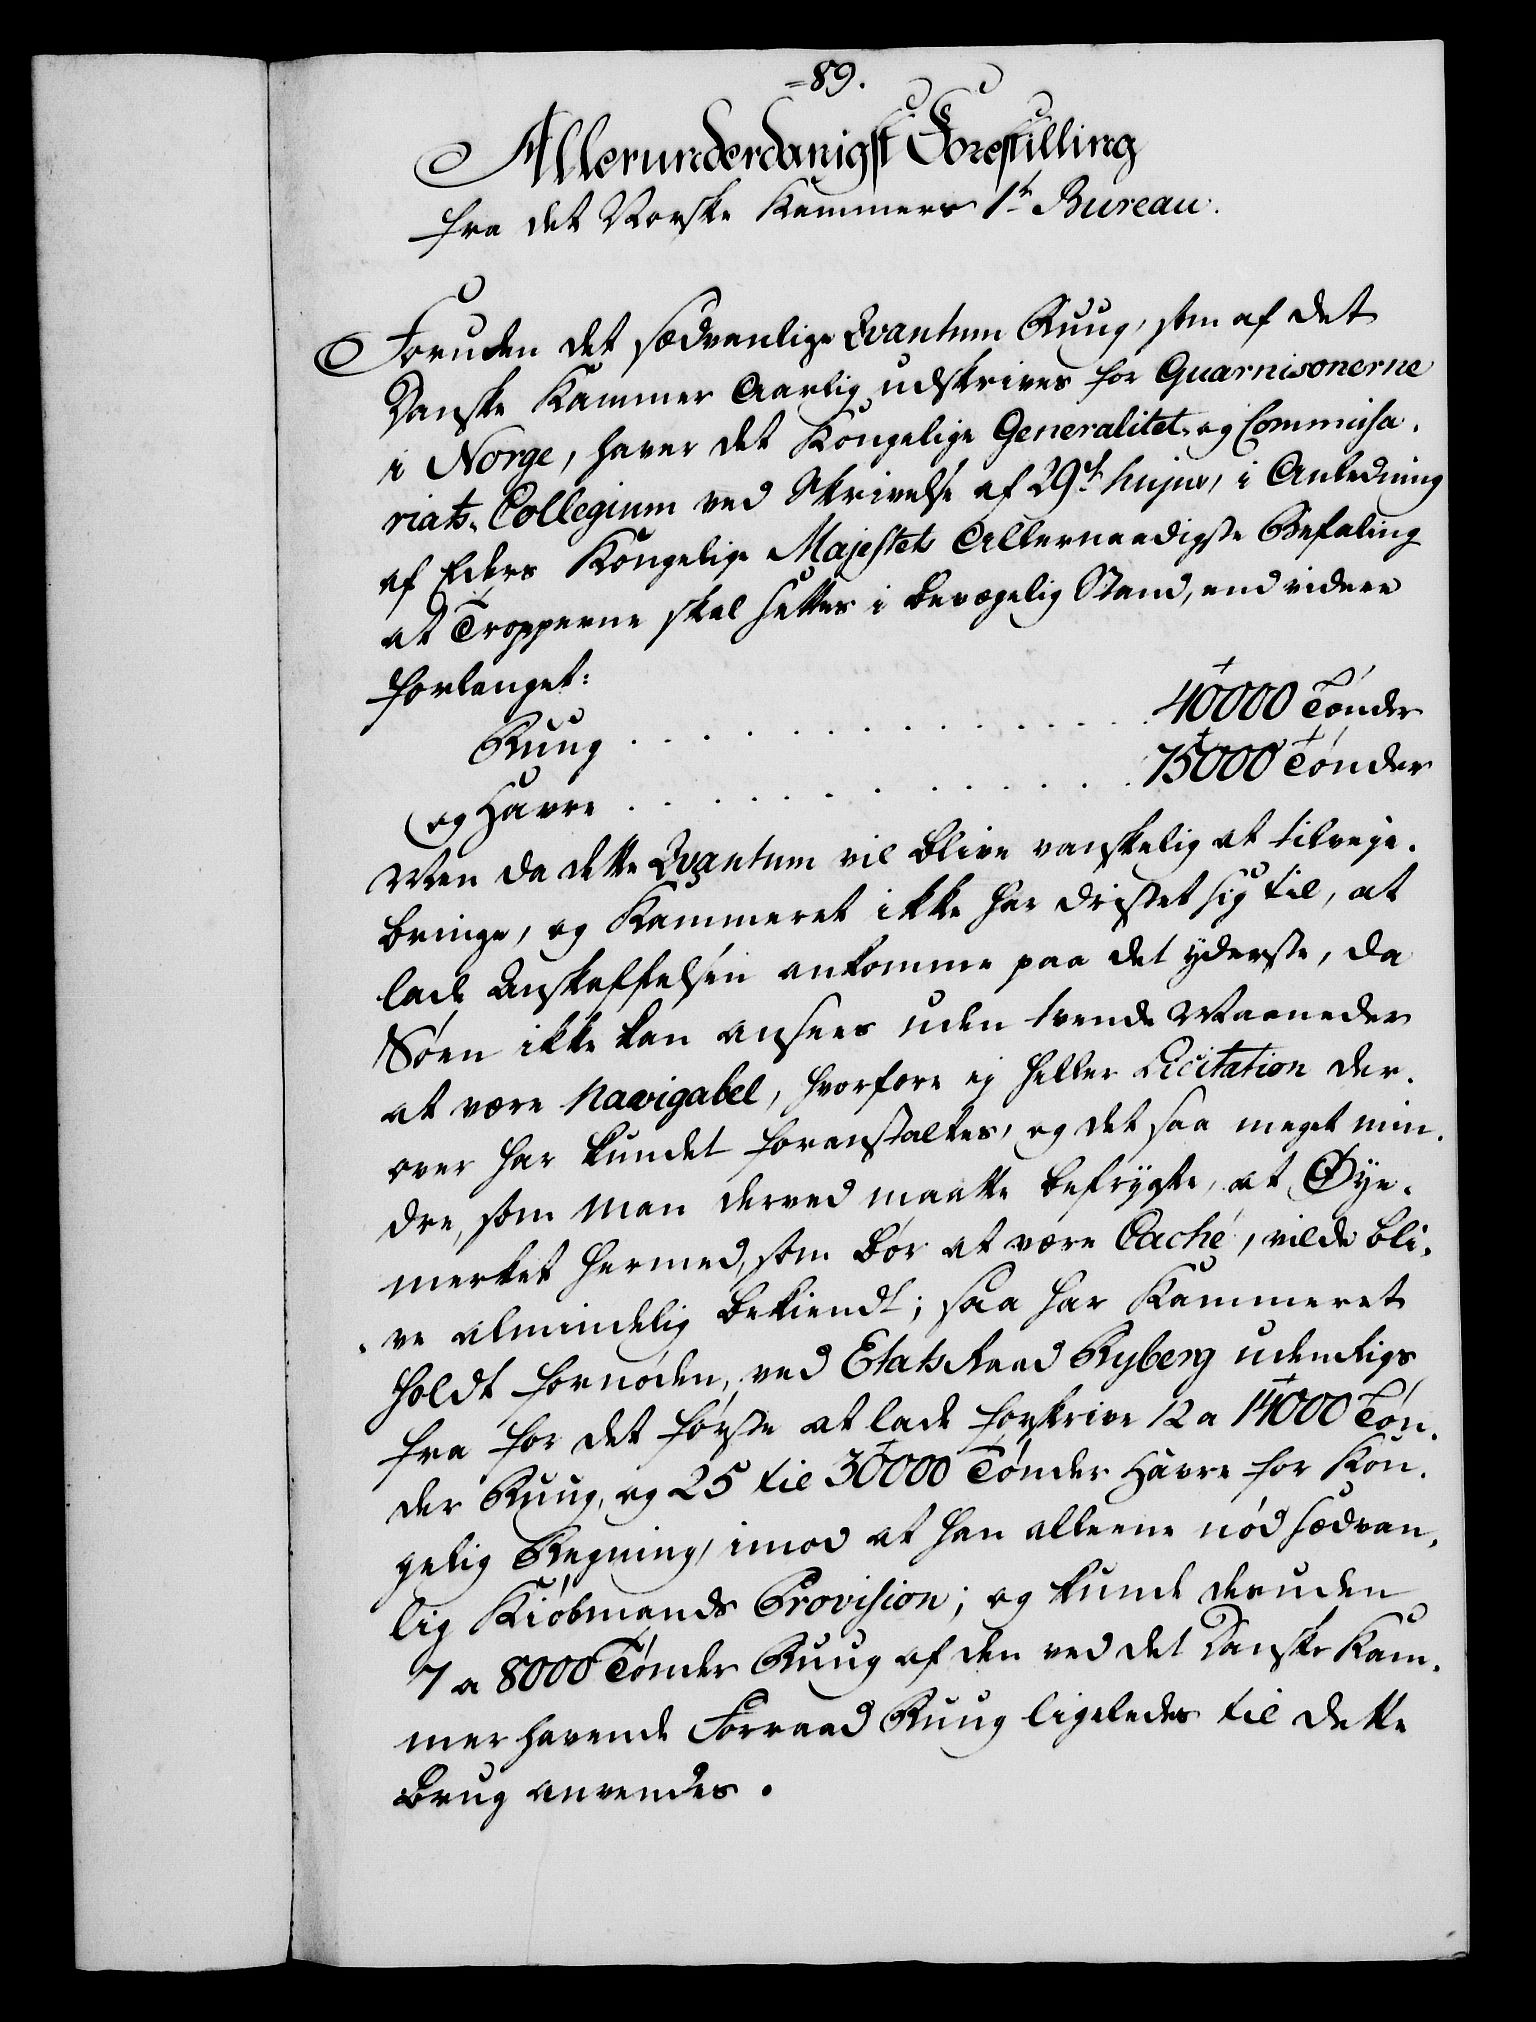 =89.
Allerunderdanigst Forestilling
fra det Norske Kammers 1te Bureau.
Foruden det sædvanlige Qvantum Ruug, som af det
Danske Kammer Aarlig udskrives for Guarnisonerne
i Norge, haver det Kongelige Generalitet og Commissa-
riats-Collegium ved Skrivelse af 29de hujus, i Anledning
af Eders Kongelige Majestets Allernaadigste Befaling
at Tropperne skal settes i bevægelig Stand, end videre
forlanget:
Ruug . . . . . . . . . . . . . 40000 Tønder
og Havre . . . . . . . . . . . . . 75000 Tønder
Men da dette Qvantum vil blive vanskelig at tilveje-
bringe, og Kammeret ikke har dristet sig til, at
lade Anskaffelsen ankomme paa det yderste, da
Søen ikke kan ansees uden tvende Maaneder
at være navigabel, hvorfore ej heller Licitation der-
over har kundet foranstaltes, og det saa meget min-
dre, som man derved maatte befrygte, at Øye-
merket hermed, som bør at være Caché, vilde bli-
ve almindelig bekiendt; saa har Kammeret
holdt fornøden, ved EtatsRaad Ryberg udenrigs
fra for det første at lade forskrive 12 a 14000 Tøn-
der Ruug, og 25 til 30000 Tønder Havre for Kon-
gelig Regning, imod at han alleene nød sædvan-
lig Kiøbmands Provision; og kunde desuden
7 a 8000 Tønder Ruug af den ved det Danske Kam-
mer havende Forraad Ruug ligeledes til dette
Brug anvendes.